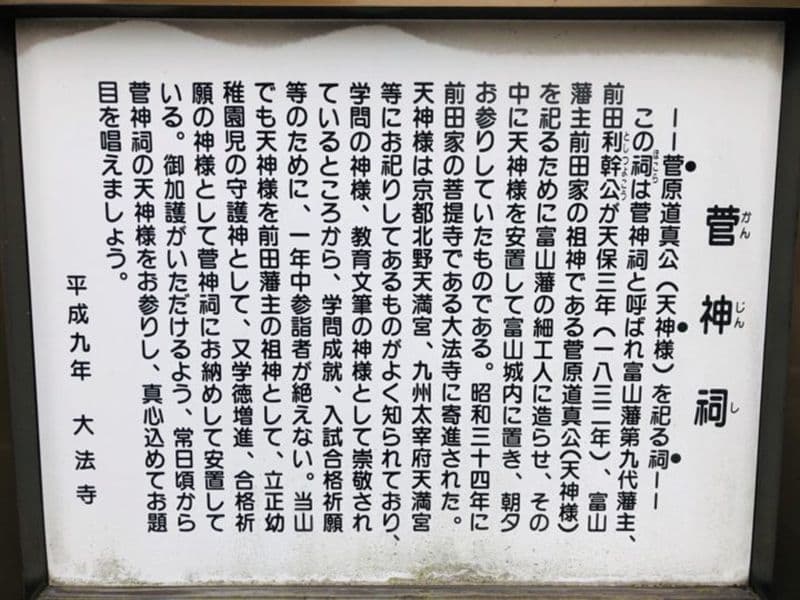 菅神祠
かんじんし
――菅原道真公(天神様)を祀る祠――
この祠は菅神祠と呼ばれ富山藩第九代藩主、
ほこら
前田利幹公が天保三年(一八三二年)、富山
としつよこう
藩主前田家の祖神である菅原道真公(天神様)
を祀るために富山藩の細工人に造らせ、その
中に天神様を安置して富山城内に置き、朝夕
お参りしていたものである。昭和三十四年に
前田家の菩提寺である大法寺に寄進された。
天神様は京都北野天満宮、九州太宰府天満宮
等にお祀りしてあるものがよく知られており、
学問の神様、教育文筆の神様として崇敬され
ているところから、学問成就、入試合格祈願
等のために、一年中参詣者が絶えない。当山
でも天神様を前田藩主の祖神として、立正幼
稚園児の守護神として、又学徳増進、合格祈
願の神様として菅神祠にお納めして安置して
いる。御加護がいただけるよう、常日頃から
菅神祠の天神様をお参りし、真心込めてお題
目を唱えましょう。
平成九年 大法寺